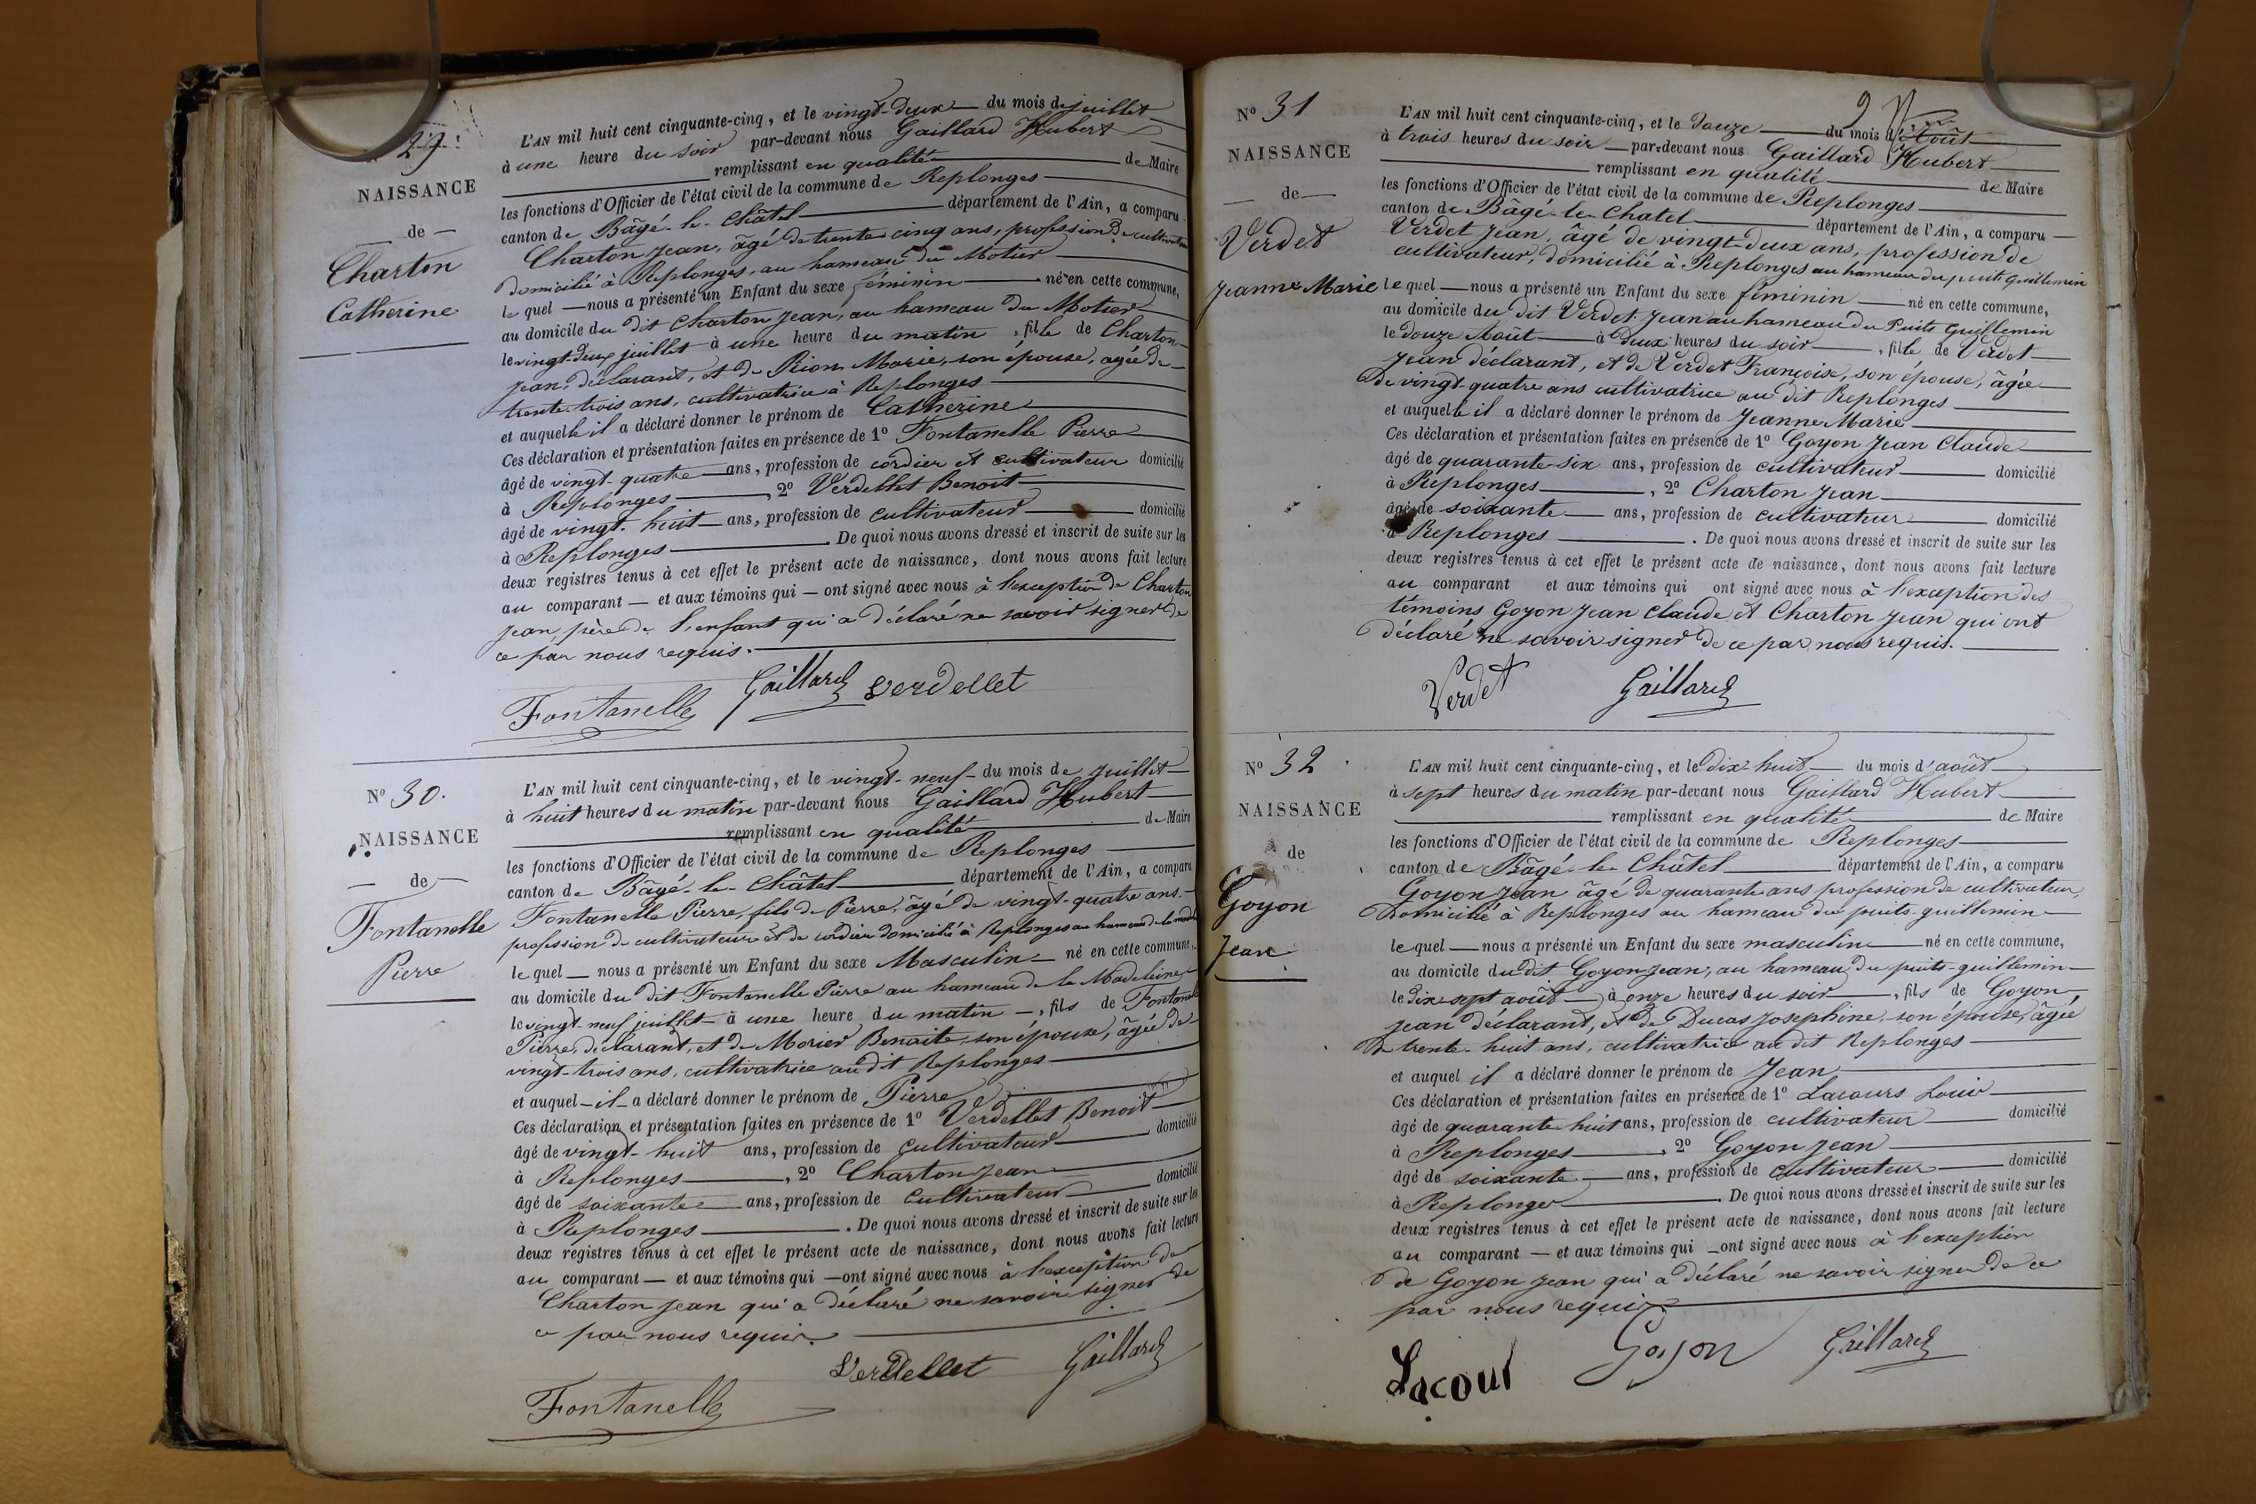 29
NAISSANCE
de
Charton
Catherine
L'AN mil huit cent cinquante-cinq, et le vingt-deux du mois de juillet
à une heure du soir par-devant nous Gaillard Hubert
remplissant en qualité de Maire
les fonctions d'Officier de l'état civil de la commune de Replonges
canton de Bâgé-le-Châtel département de l'Ain, a comparu
Charton Jean, âgé de trente cinq ans, profession de cultivateur
domicilié à Replonges, au hameau du Motier
le quel nous a présenté un Enfant du sexe féminin née en cette commune,
au domicile du dit Charton Jean, au hameau du Motier
le vingt-deux juillet à une heure du matin, fille de Charton
Jean, déclarant, et de Rion Marie, son épouse, agée de
trente-trois ans, cultivatrice à Replonges
et auquelle il a déclaré donner le prénom de Catherine
Ces déclaration et présentation faites en présence de 1º Fontanelle Pierre
âgé de vingt-quatre ans, profession de cordier et cultivateur domicilié
à Replonges, 2º Verdellet Benoit
âgé de vingt-huit ans, profession de cultivateur domicilié
à Replonges. De quoi nous avons dressé et inscrit de suite sur les
deux registres tenus à cet effet le présent acte de naissance, dont nous avons fait lecture
au comparant et aux témoins qui ont signé avec nous à l'exception de Charton
Jean, père de l'enfant qui a déclaré ne savoir signer de
ce par nous requis.
Fontanelle Gaillard Verdellet
Nº 30.
NAISSANCE
de
Fontanelle
Pierre
L'AN mil huit cent cinquante-cinq, et le vingt-neuf du mois de juillet
à huit heures du matin par-devant nous Gaillard Hubert
remplissant en qualité de Maire
les fonctions d'Officier de l'état civil de la commune de Replonges
canton de Bâgé-le-Châtel département de l'Ain, a comparu
Fontanelle Pierre, fils de Pierre, âgé de vingt-quatre ans
profession de cultivateur et de cordier domicilié à Replonges au hameau de la
le quel nous a présenté un Enfant du sexe Masculin né en cette commune,
au domicile du dit Fontanelle Pierre au hameau de la Madeleine
le vingt-neuf juillet à une heure du matin, fils de Fontanelle
Pierre, déclarant, et de Morier Benoite, son épouse, âgée de
vingt-trois ans, cultivatrice au dit Replonges
et auquel il a déclaré donner le prénom de Pierre
Ces déclaration et présentation faites en présence de 1º Verdellet Benoit
âgé de vingt-huit ans, profession de cultivateur domicilié
à Replonges, 2º Charton Jean
âgé de soixante ans, profession de cultivateur domicilié
à Replonges. De quoi nous avons dressé et inscrit de suite sur les
deux registres tenus à cet effet le présent acte de naissance, dont nous avons fait lecture
au comparant et aux témoins qui ont signé avec nous à l'exception de
Charton Jean qui a déclaré ne savoir signer de
ce par nous requis
Verdellet Gaillard
Fontanelle
Nº 31
NAISSANCE
de
Verdet
Jeanne Marie
L'AN mil huit cent cinquante-cinq, et le douze du mois d'Août
à trois heures du soir par-devant nous Gaillard Hubert
remplissant en qualité de Maire
les fonctions d'Officier de l'état civil de la commune de Replonges
canton de Bâgé-le-Chatel département de l'Ain, a comparu
Verdet Jean, âgé de vingt-deux ans, profession de
cultivateur, domicilié à Replonges au hameau du puits Guillemin
le quel nous a présenté un Enfant du sexe féminin né en cette commune,
au domicile du dit Verdet Jean au hameau du Puits Guillemin
le douze Août à deux heures du soir, fille de Verdet
Jean déclarant, et de Verdet Françoise, son épouse, âgée
de vingt-quatre ans cultivatrice au dit Replonges
et auquelle il a déclaré donner le prénom de Jeanne Marie
Ces déclaration et présentation faites en présence de 1º Goyon Jean Claude
âgé de quarante-six ans, profession de cultivateur domicilié
à Replonges, 2º Charton Jean
âgé de soixante ans, profession de cultivateur domicilié
à Replonges. De quoi nous avons dressé et inscrit de suite sur les
deux registres tenus à cet effet le présent acte de naissance, dont nous avons fait lecture
au comparant et aux témoins qui ont signé avec nous à l'exception des
témoins Goyon Jean Claude et Charton Jean qui ont
déclaré ne savoir signer de ce par nous requis.
Verdet Gaillard
Nº 32
NAISSANCE
de
Goyon
Jean
L'AN mil huit cent cinquante-cinq, et le dix-huit du mois d'août
à sept heures du matin par-devant nous Gaillard Hubert
remplissant en qualité de Maire
les fonctions d'Officier de l'état civil de la commune de Replonges
canton de Bâgé-le-Châtel département de l'Ain, a comparu
Goyon Jean âgé de quarante ans, profession de cultivateur,
domicilié à Replonges au hameau du puits-guillemin
le quel nous a présenté un Enfant du sexe masculin né en cette commune,
au domicile du dit Goyon Jean, au hameau du puits-guillemin
le dix-sept août à onze heures du soir, fils de Goyon
Jean déclarant, et de Ducas Josephine son épouse, âgée
de trente-huit ans, cultivatrice au dit Replonges
et auquel il a déclaré donner le prénom de Jean
Ces déclaration et présentation faites en présence de 1º Lacours Louis
âgé de quarante-huit ans, profession de cultivateur domicilié
à Replonges, 2º Goyon Jean
âgé de soixante ans, profession de cultivateur domicilié
à Replonges. De quoi nous avons dressé et inscrit de suite sur les
deux registres tenus à cet effet le présent acte de naissance, dont nous avons fait lecture
au comparant et aux témoins qui ont signé avec nous à l'exception
de Goyon Jean qui a déclaré ne savoir signer de ce
par nous requis.
Lacour Goyon Gaillard